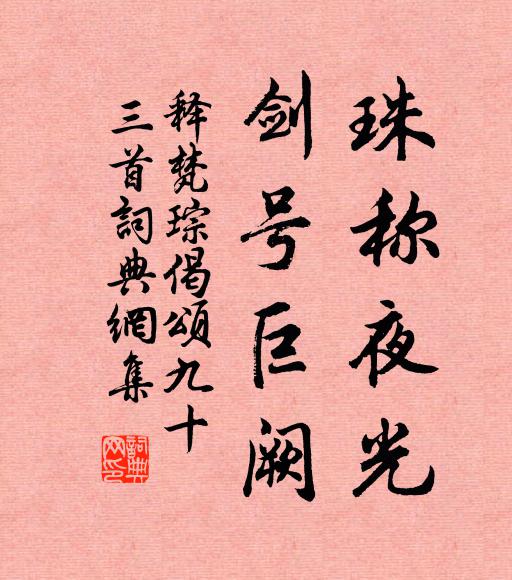 珠称夜光
剑号巨阙
释梵琮偈颂九十
三首詞典網集
詞典
网印